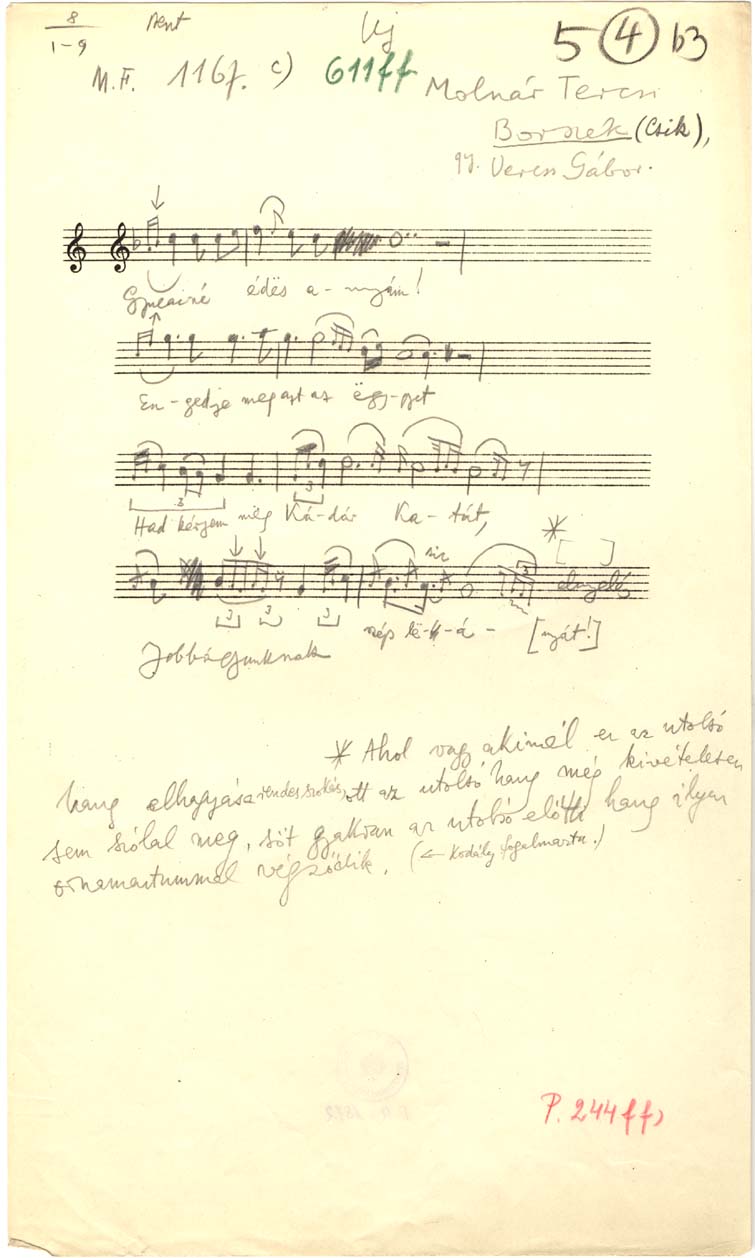 8 Ment Uj 5 4 b3
1-9
M.F. 116f. c) 611ff Molnár Tercsi
Borszék (Csik),
gy. Veress Gábor.
édës a- nyám!
En - gedje meg azt az ëgy-gyet
3
Had kérjem még Ká-dár Ka- tát,
3
*
[ ]
3
3 3 3
Jobbágyunknak szép lë-á - [nyát!]
* Ahol vagy akinél ez az utolsó
hang elhagyása rendes szokás, ott az utolsó hang még kivételesen
sem szólal meg, sőt gyakran az utolsó előtti hang ilyen
ornamentummal végződik. (← Kodály fogalmazta.)
P. 244ff